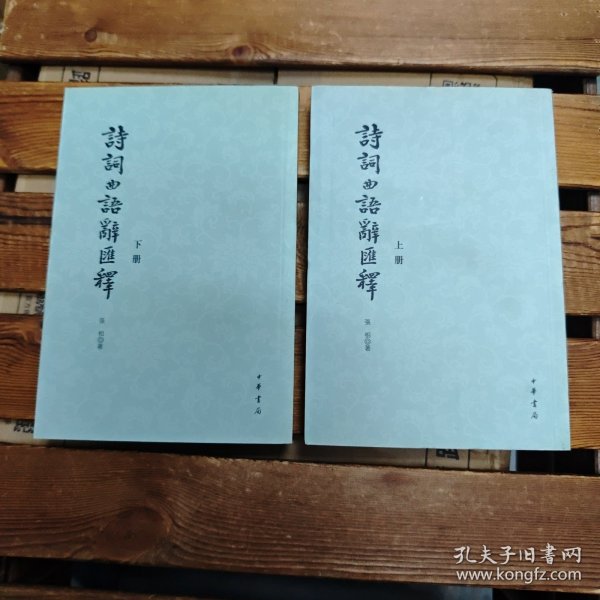 詩詞曲語辭匯釋
下册
張相◎著
中華書局
詩詞曲語辭匯釋
上册
張相◎著
中華書局
孔夫子旧书网
www.kongfz.com